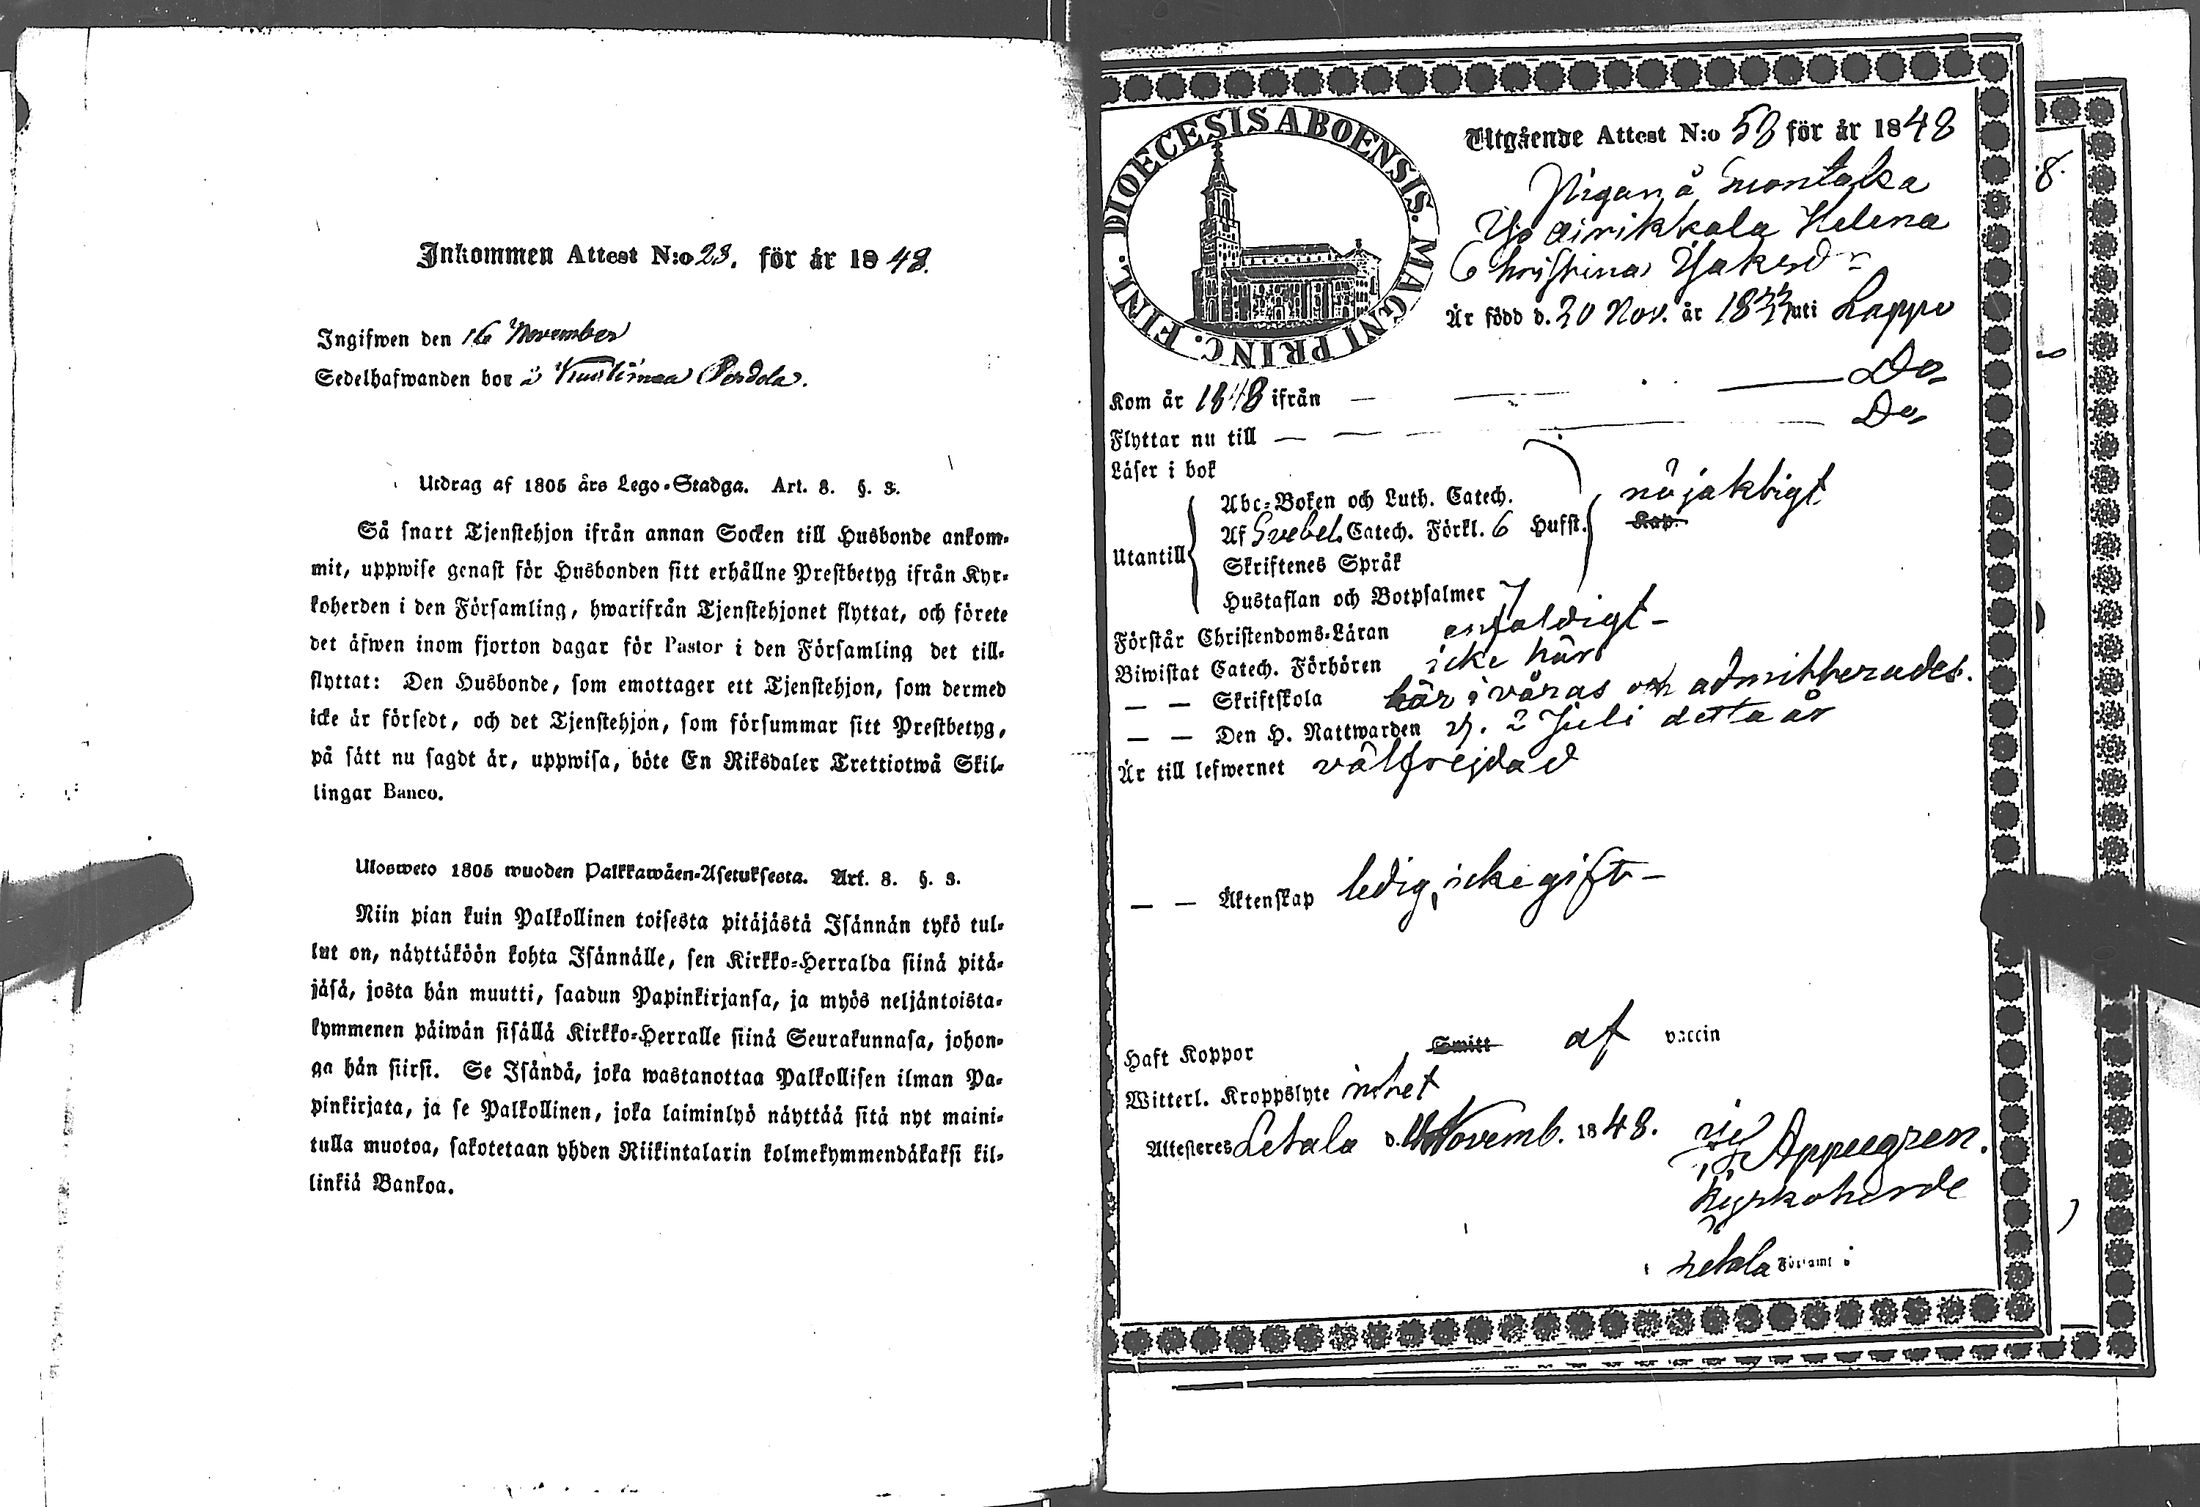 Inkommen Attest N:o 23. för år 1848.
Ingifwen den 16 November
Sedelhafwanden bor å
Utdrag af 1805 års Lego-Stadga. Art. 8. §. 3.
Så snart Tjenstehjon ifrån annan Socken till Husbonde ankom-
mit, uppwise genast för Husbonden sitt erhållne Prestbetyg ifrån Kyr-
koherden i den Församling, hwarifrån Tjenstehjonet flyttat, och förete
det äfwen inom fjorton dagar för Pastor i den Församling det till-
flyttat: Den Husbonde, som emottager ett Tjenstehjon, som dermed
icke är försedt, och det Tjenstehjon, som försummar sitt Prestbetyg,
på sätt nu sagdt är, uppwisa, böte En Riksdaler Trettiotwå Skil-
lingar Banco.
Ulosweto 1805 wuoden Palkkawäen-Asetuksesta. Art. 8. §. 3.
Niin pian kuin Palkollinen toisesta pitäjästä Isännän tykö tul-
lut on, näyttäköön kohta Isännälle, sen Kirkko-Herralda siinä pitä-
jäsä, josta hän muutti, saadun Papinkirjansa, ja myös neljäntoista-
kymmenen päiwän sisällä Kirkko-Herralle siinä Seurakunnasa, johon-
ga hän siirsi. Se Isändä, joka wastanottaa Palkollisen ilman Pa-
pinkirjata, ja se Palkollinen, joka laiminlyö näyttää sitä nyt maini-
tulla muotoa, sakotetaan yhden Riikintalarin kolmekymmendäkaksi kil-
linkiä Bankoa.
DIOECESIS ABOENSIS. MAGNI PRINC. FINL.
Utgående Attest N:o 58 för år 1848
Pigan å Suontaka
Yso Heirikkala Helena
Christina Isaksd:r
Är född d. 20 Nov. år 18 uti Lappo
Kom år 1848 ifrån — — — Do
Flyttar nu till — — — Do
Läser i bok
Utantill
Abc-Boken och Luth. Catech.
Af Svebel. Catech. Förkl. 6 Hufst.
Skriftenes Språk
Hustaflan och Botpsalmer
nöjaktigt
Kap.
Förstår Christendoms-Läran enfaldigt
Biwistat Catech. Förhören icke här
— — Skriftskola här i våras och admitterades.
— — Den H. Nattwarden d. 2 Juli detta år
Är till lefwernet välfrejdad
— — Äktenskap ledig, icke gift
Haft Koppor Smitt af vaccin
Witterl. Kroppslyte intet
Attesteras Letala d. Novemb. 1848.
Appelgren.
Kyrkoherde
i Letala Församl
8.